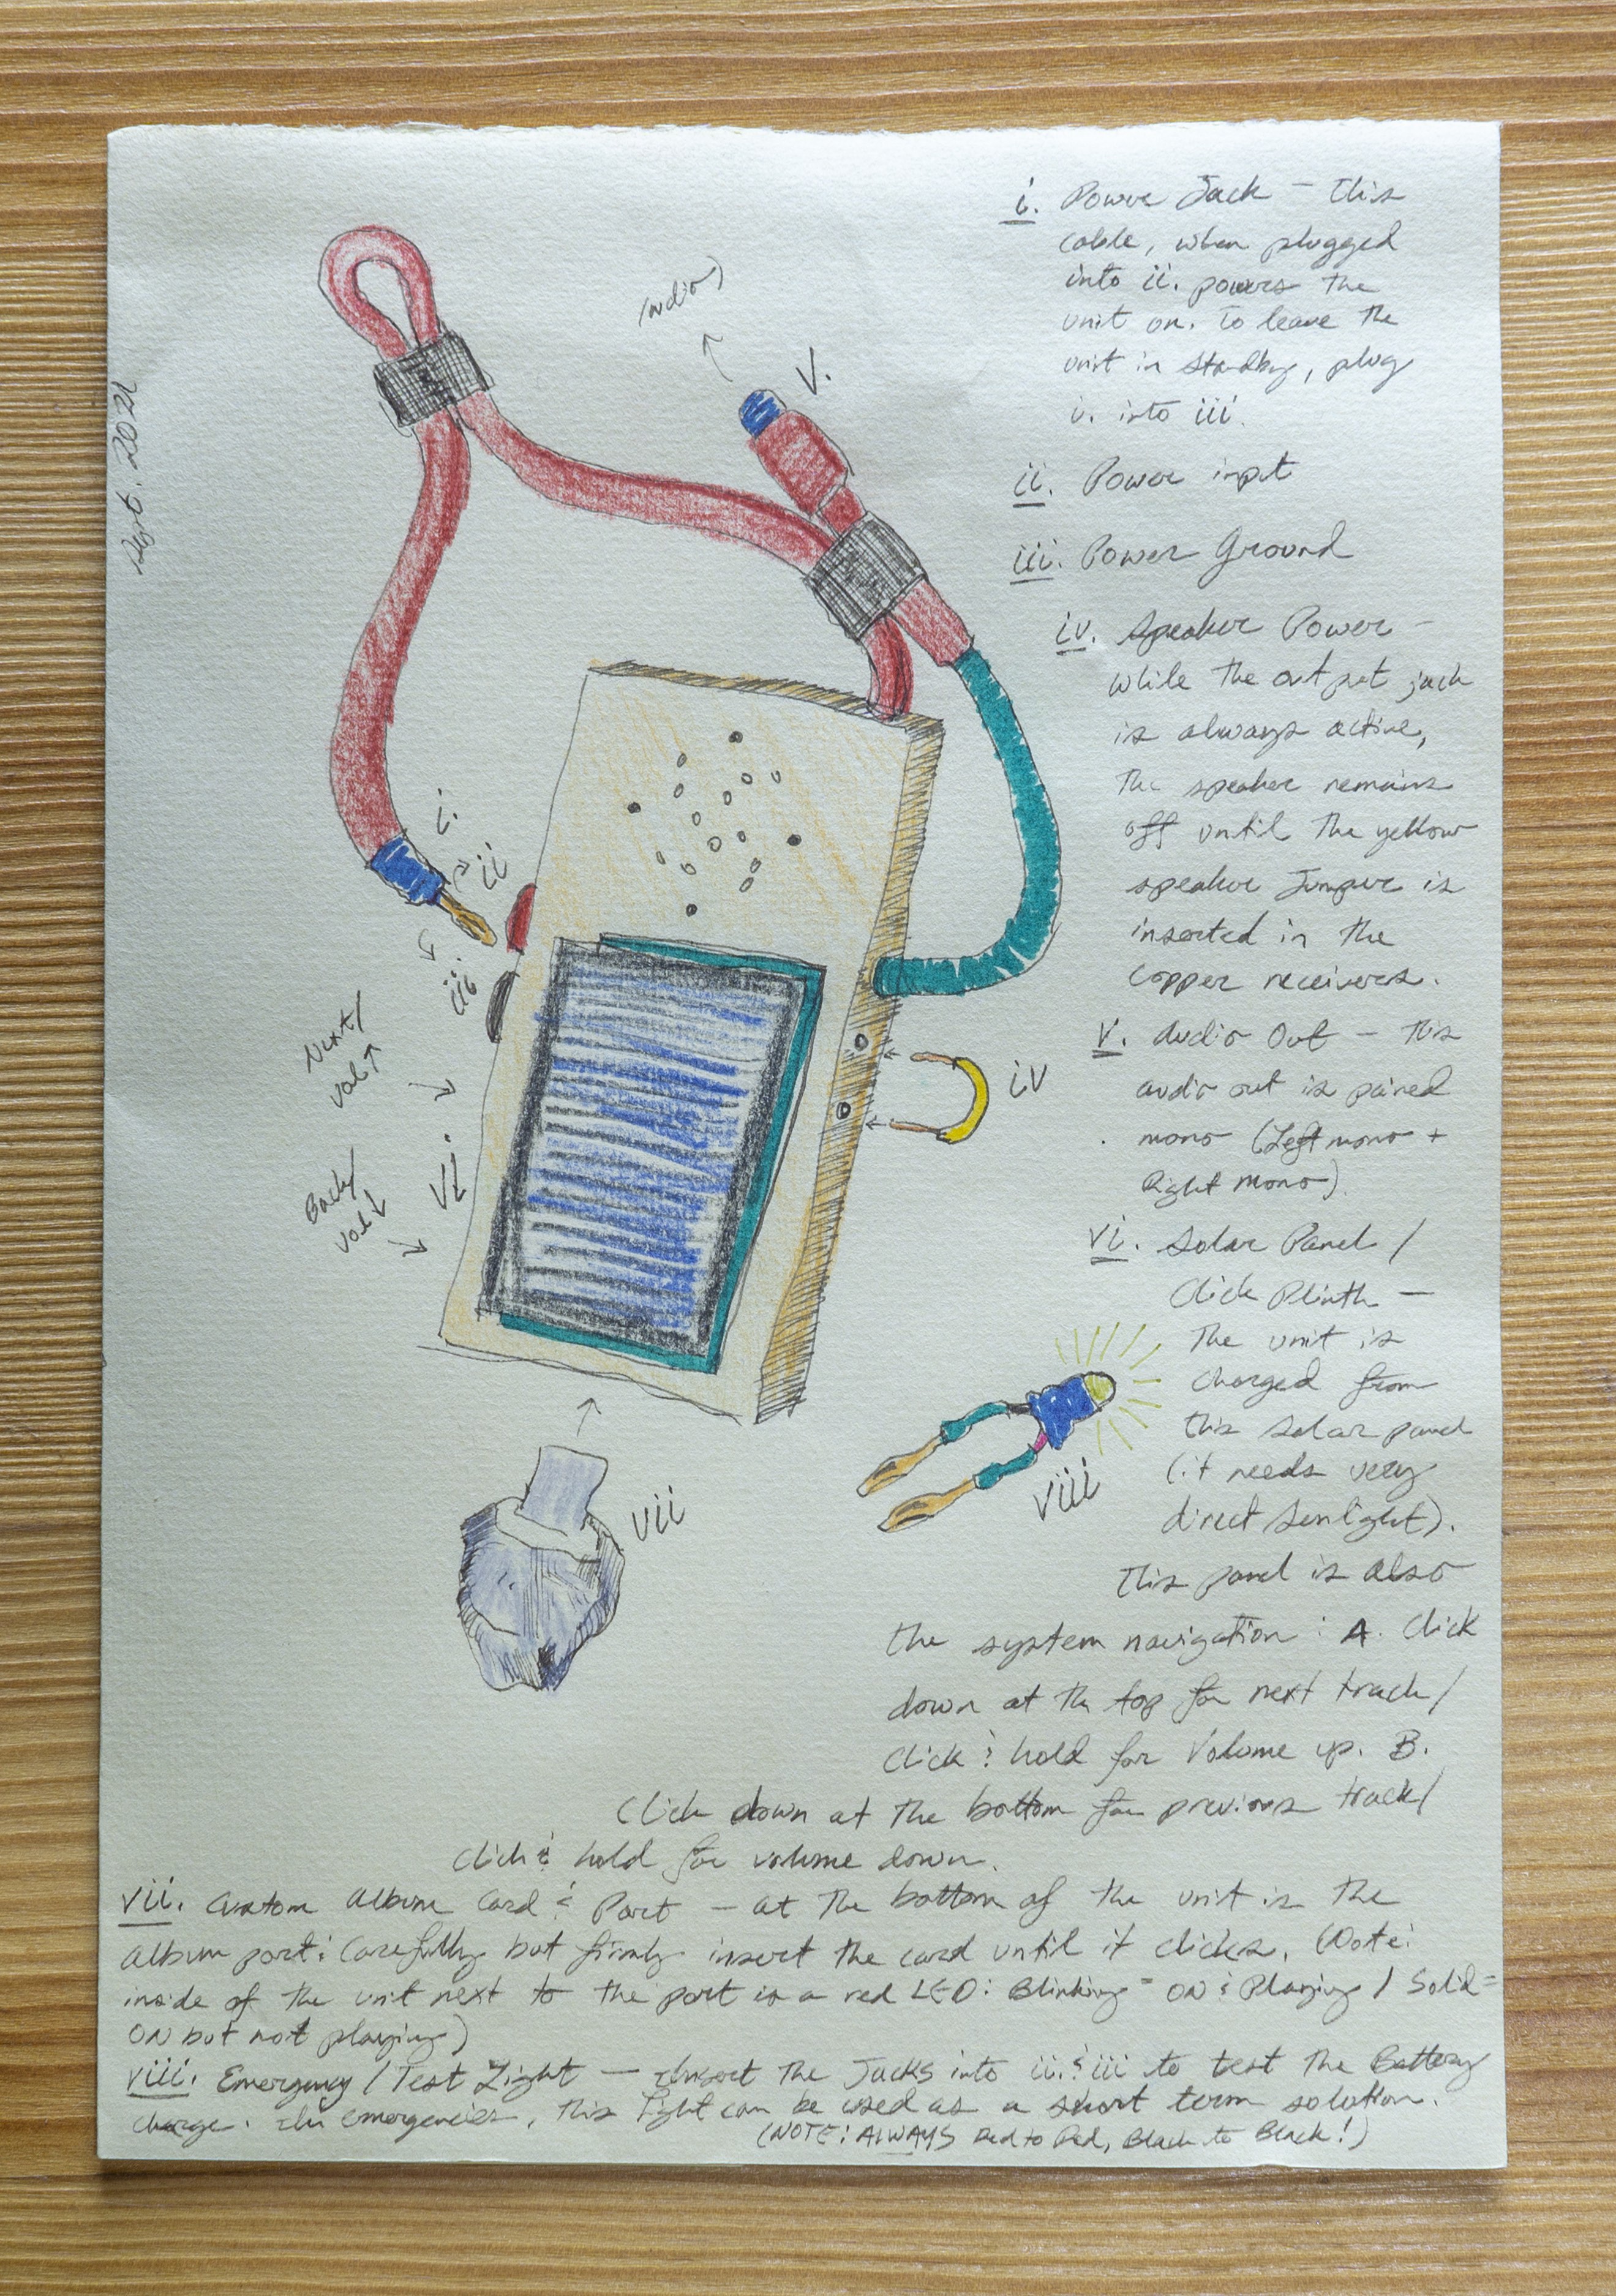 Sept. 2021
(audio)
v.
i.
ii
iii.
Next/
vol ↑
vi.
Back/
vol ↓
iv
vii
viii
i. Power Jack — This
cable, when plugged
into ii. powers the
unit on. To leave the
unit in standby, plug
i. into iii.
ii. Power input
iii. Power Ground
iv. Speaker Power —
While the output jack
is always active,
The speaker remains
off until the yellow
speaker Jumper is
inserted in the
copper receivers.
V. Audio Out — This
audio out is paired
mono (Left mono +
Right mono).
vi. Solar Panel /
Click Plinth —
The unit is
charged from
this solar panel
(it needs very
direct sunlight).
This panel is also
the system navigation: A. Click
down at the top for next track/
Click & hold for Volume up. B.
Click down at the bottom for previous track/
click & hold for volume down.
vii. Custom Album Card & Port — at the bottom of the unit is the
album port: Carefully but firmly insert the card until it clicks. (Note:
inside of the unit next to the port is a red LED: Blinking = ON & Playing / Solid =
ON but not playing)
viii. Emergency / Test Light — Insert the Jacks into ii. & iii to test the Battery
charge. In emergencies, this light can be used as a short term solution.
(NOTE: ALWAYS Red to Red, Black to Black!)